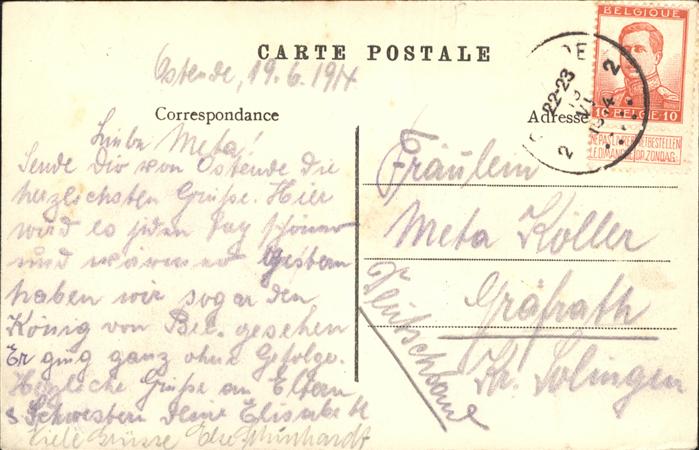 CARTE POSTALE
Ostende, 19.6.1914
Correspondance
Adresse
BELGIQUE
10 BELGIE 10
NE PAS LIVRER LE DIMANCHE
NIET BESTELLEN OP ZONDAG
22-23
Liebe Meta!
Sende Dir von Ostende die
herzlichsten Grüße. Hier
wird es jeden Tag schöner
und wärmer Gestern
haben wir sogar den
König von Bel. gesehen
Er ging ganz ohne Gefolge.
Herzliche Grüße an Eltern
& Schwestern Deine Elisabeth
Viele Grüsse Else
Fräulein
Meta Köller
Gräfrath
Kr. Solingen
Deutschland